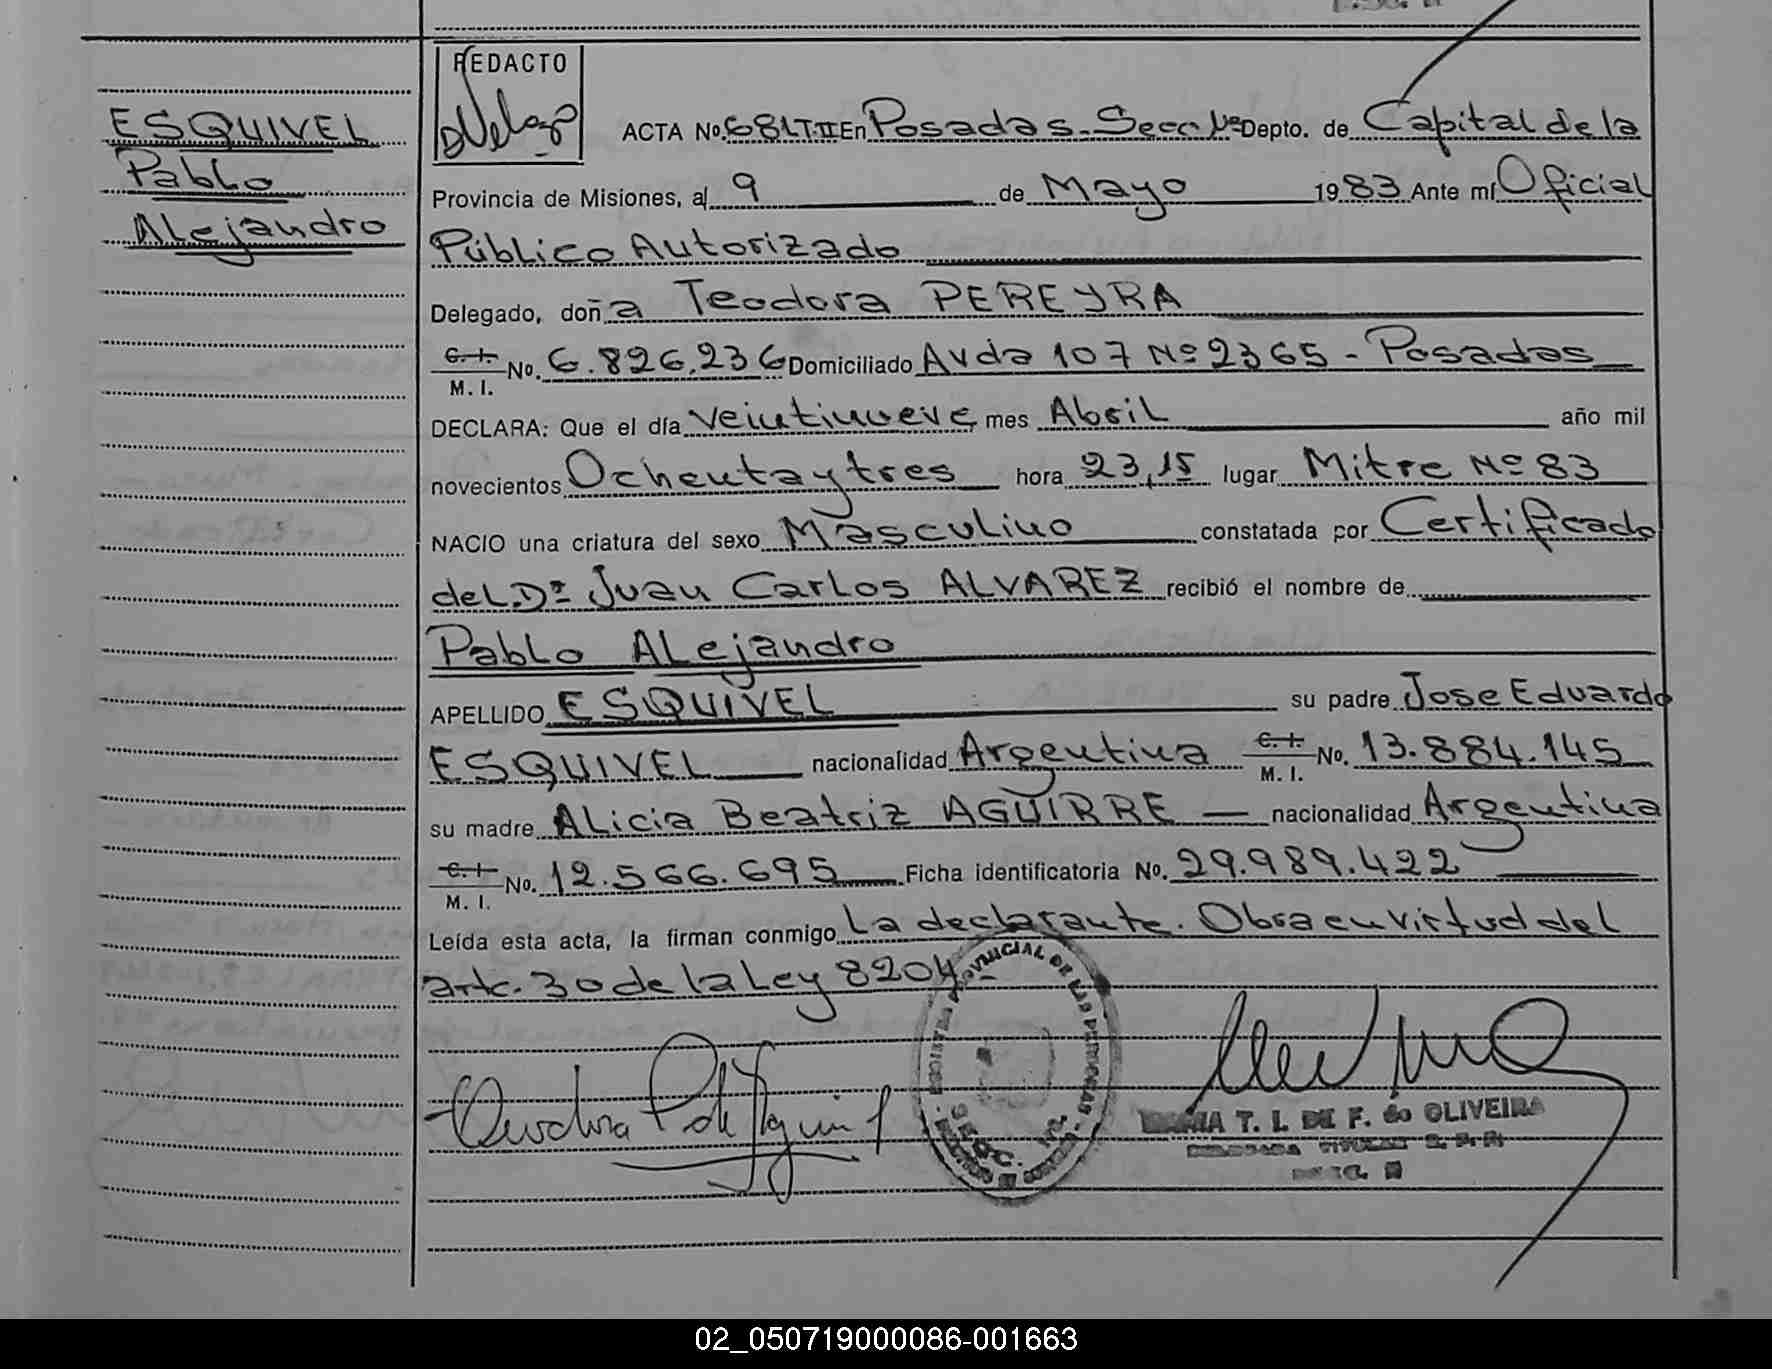 ESQUIVEL
Pablo
Alejandro
REDACTO
ACTA No. 681 T.II En Posadas - Secc 1ª Depto. de Capital de la
Provincia de Misiones, a 9 de Mayo 1983 Ante mí Oficial
Público Autorizado
Delegado, doña Teodora PEREYRA
C. I. M. I. No. 6.826.236 Domiciliado Avda 107 Nº 2365 - Posadas
DECLARA: Que el día veintinueve mes Abril año mil
novecientos Ochenta y tres hora 23,15 lugar Mitre Nº 83
NACIO una criatura del sexo Masculino constatada por Certificado
del Dr Juan Carlos ALVAREZ recibió el nombre de
Pablo Alejandro
APELLIDO ESQUIVEL su padre Jose Eduardo
ESQUIVEL nacionalidad Argentina C. I. M. I. No. 13.884.145
su madre Alicia Beatriz AGUIRRE nacionalidad Argentina
C. I. M. I. No. 12.566.695 Ficha identificatoria No. 29.989.422
Leída esta acta, la firman conmigo la declarante. Obra en virtud del
artc. 30 de la Ley 8204 -
PROVINCIAL DE LAS PERSONAS
SECC.
MARIA T. I. DE F. do OLIVEIRA
02_050719000086-001663